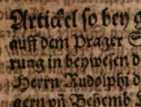 Artickel so bey g
auff dem Prager
rung in beywesen d
Herrn Rudolphi d
gern vñ Behemb